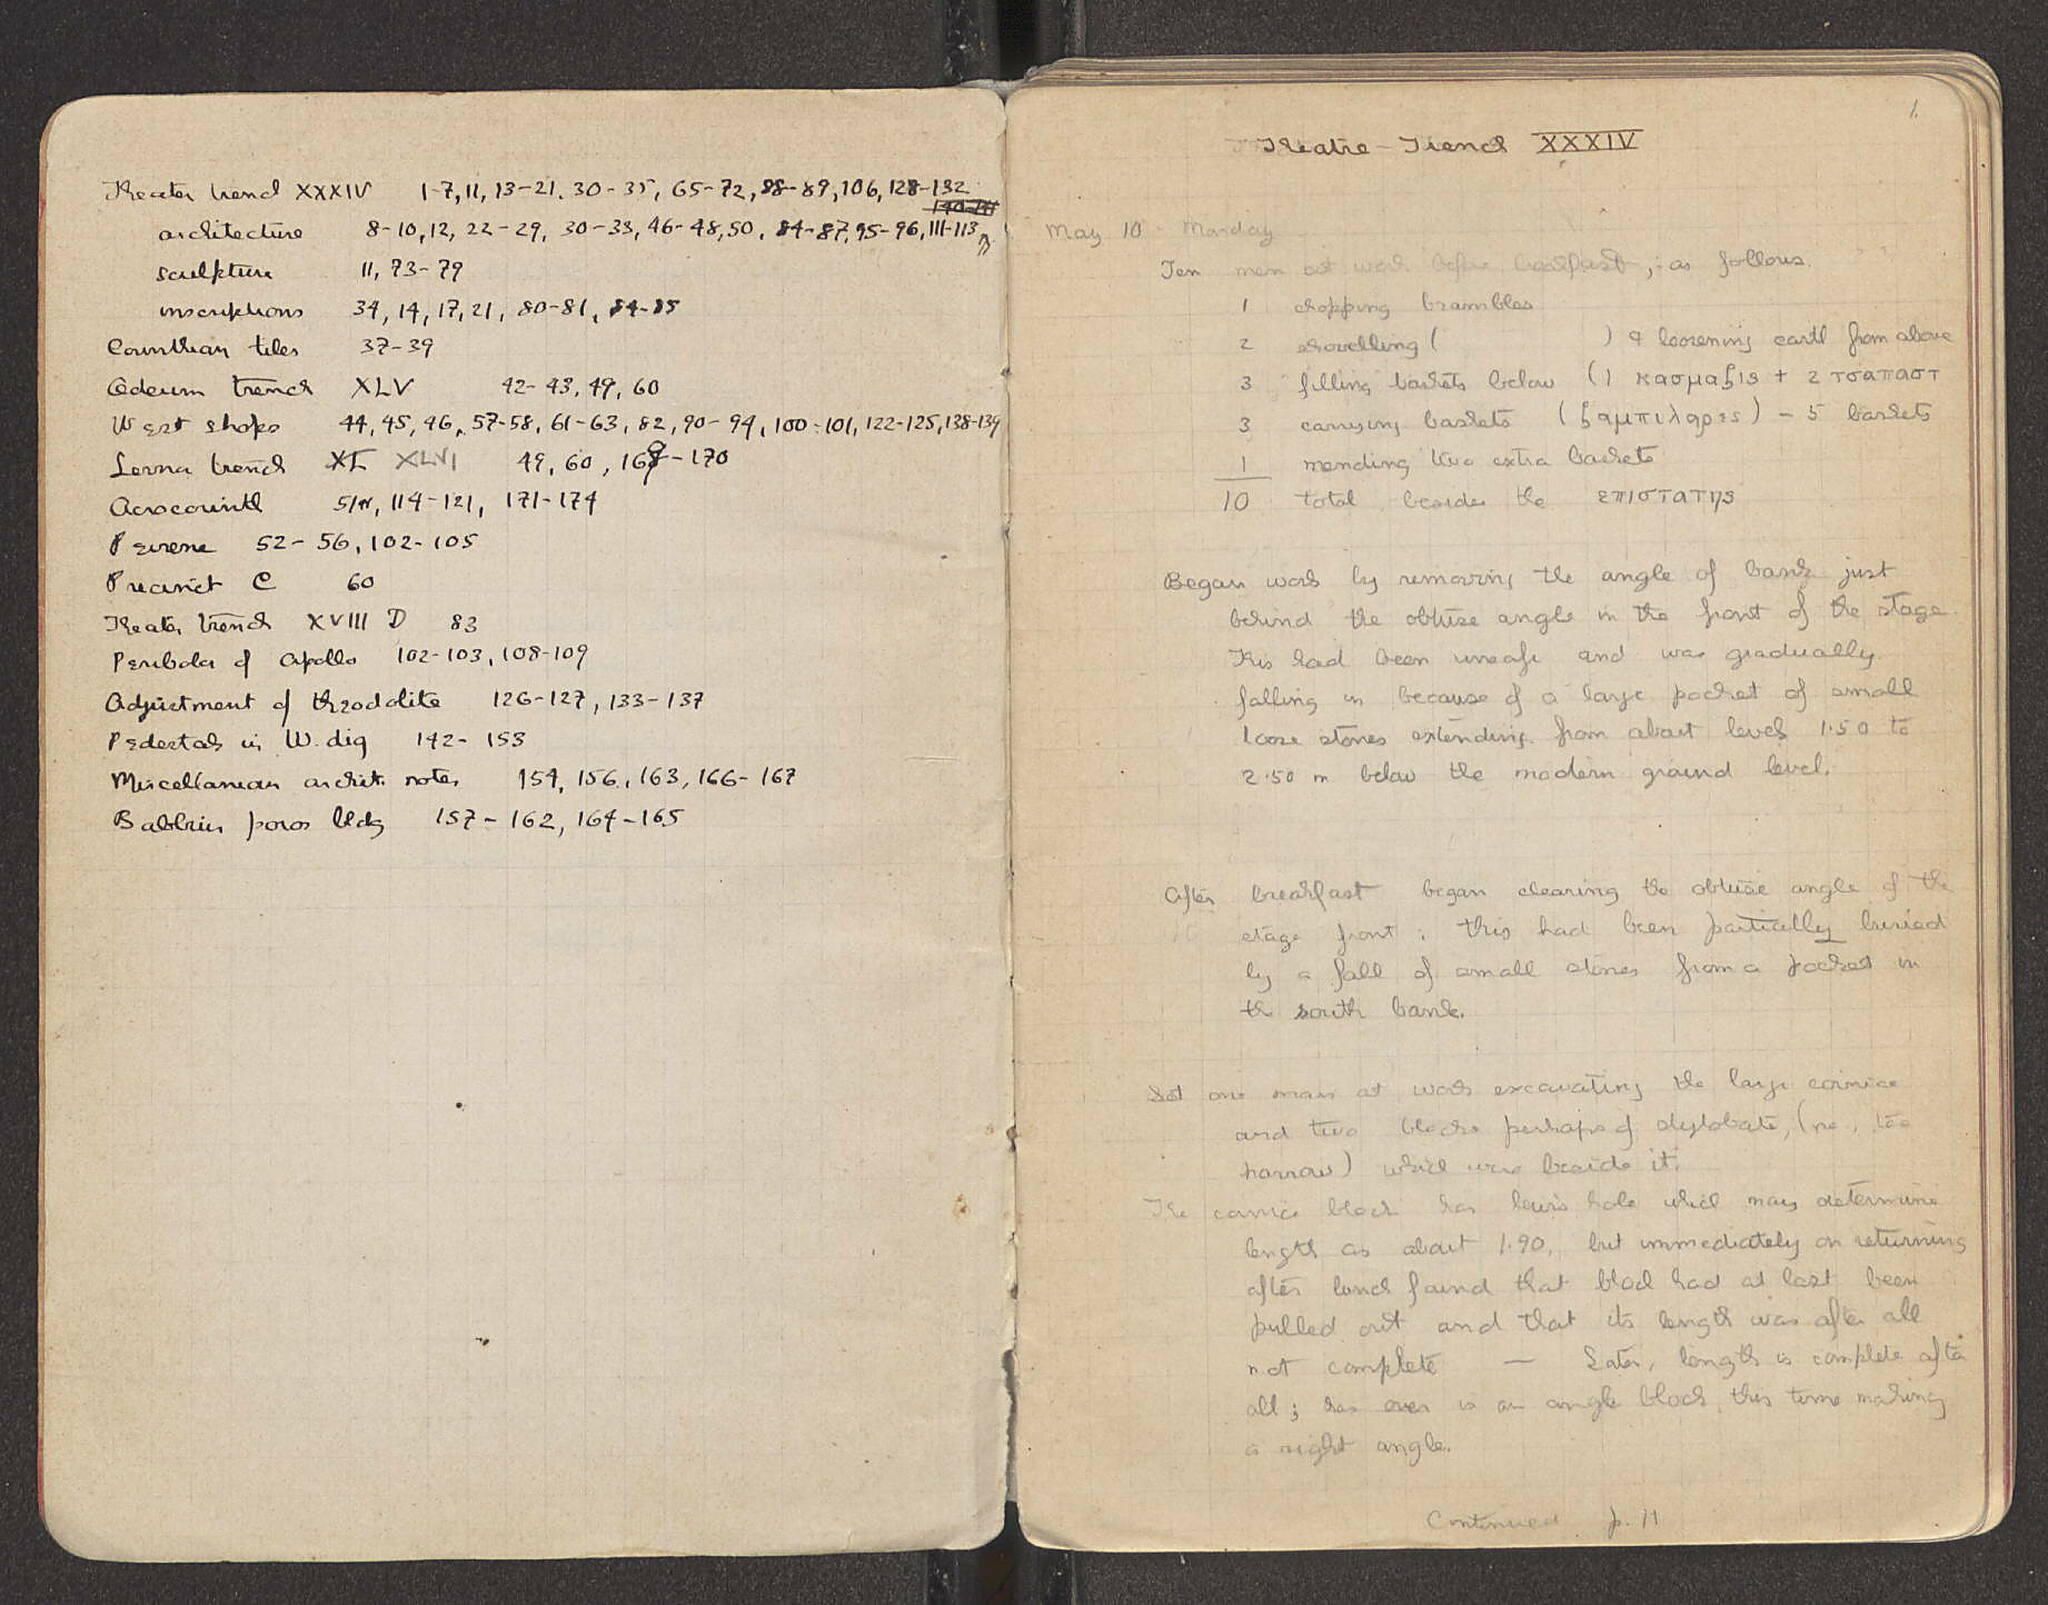 Theater trench XXXIV 1-7, 11, 13-21, 30-35, 65-72, 88-89, 106, 128-132
architecture 8-10, 12, 22-29, 30-33, 46-48, 50, 84-87, 95-96, 111-113,
sculpture 11, 73-79
inscriptions 34, 14, 17, 21, 80-81, 84-85
Corinthian tiles 37-39
Odeum trench XLV 42-43, 49, 60
West shops 44, 45, 46, 57-58, 61-63, 82, 90-94, 100-101, 122-125, 138-139
Lerna trench XL XLVI 49, 60, 169-170
Acrocorinth 51, 114-121, 171-174
Peirene 52-56, 102-105
Precinct C 60
Theater trench XVIII D 83
Peribolos of Apollo 102-103, 108-109
Adjustment of theodolite 126-127, 133-137
Pedestals in W. dig 142-153
Miscellanean archit. notes 154, 156, 163, 166-167
Babbius poros bldg 157-162, 164-165
1.
Theatre - Trench XXXIV
May 10 Monday
Ten men at work before breakfast, as follows.
1 chopping brambles
2 shovelling ( ) & loosening earth from above
3 filling baskets below (1 κασμαξις + 2 τσαπαστ
3 carrying baskets (ζαμπιλαρες) - 5 baskets
1 mending two extra baskets
10 total besides the επιστατης
Began work by removing the angle of bank just
behind the obtuse angle in the front of the stage.
This had been unsafe and was gradually
falling in because of a large pocket of small
loose stones extending from about level 1.50 to
2.50 m below the modern ground level.
After breakfast began clearing the obtuse angle of the
stage front; this had been partially buried
by a fall of small stones from a pocket in
the south bank.
Set one man at work excavating the large cornice
and two blocks perhaps of stylobate, (no, too
narrow) which were beside it.
The cornice block has lewis hole which may determine
length as about 1.90, but immediately on returning
after lunch found that block had at last been
pulled out and that its length was after all
not complete — Later, length is complete after
all; has over is an angle block this time making
a right angle.
Continued p. 11